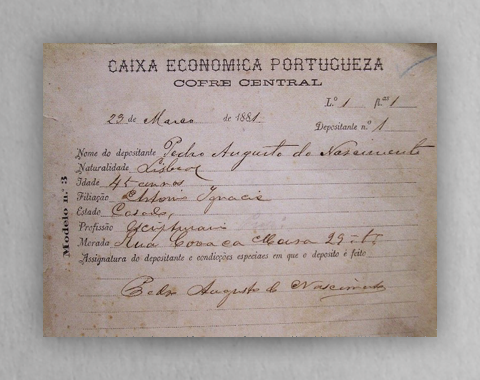 CAIXA ECONOMICA PORTUGUEZA
COFRE CENTRAL
L.º 1 fl.as 1
23 de Março de 1881
Depositante n.º 1
Nome do depositante Pedro Augusto do Nascimento
Naturalidade Lisboa
Idade 45 annos
Filiação Antonio Ignacio
Estado Casado,
Profissão
Morada Rua Cova da Moura 29-1º
Assignatura do depositante e condicções especiaes em que o deposito é feito
Pedro Augusto do Nascimento
Modelo n.º 3